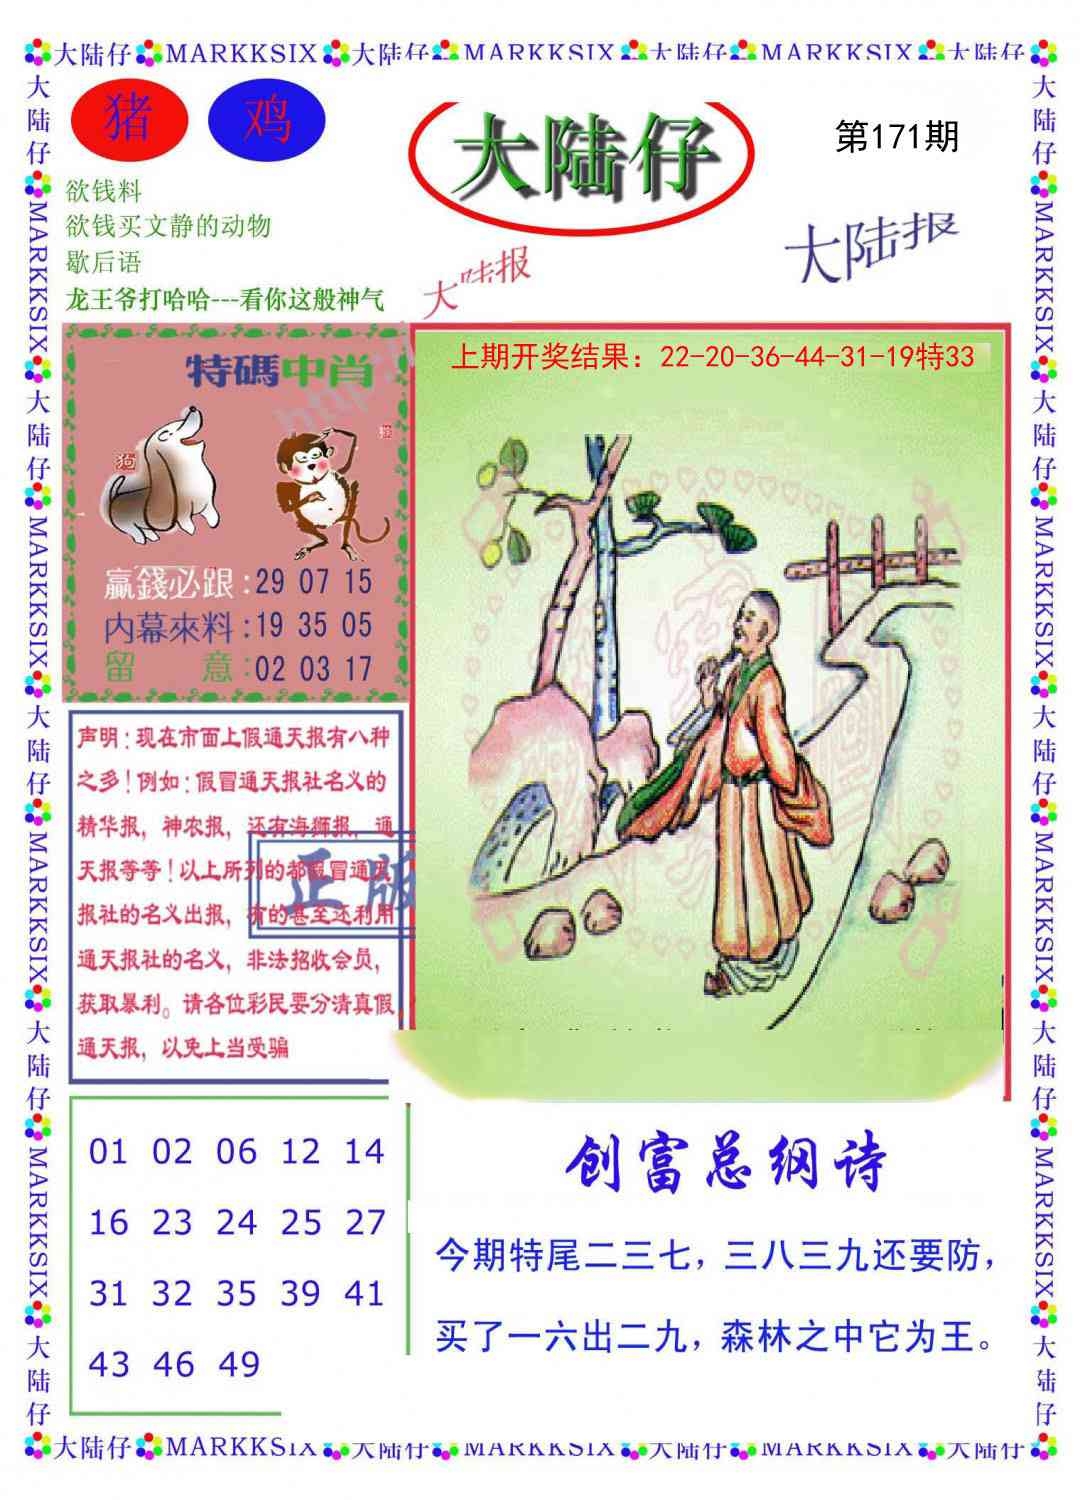 大陆仔 MARKKSIX 大陆仔 MARKKSIX 大陆仔 MARKKSIX 大陆仔
猪 鸡
大陆仔
第171期
欲钱料
欲钱买文静的动物
歇后语
龙王爷打哈哈---看你这般神气
大陆报
大陆报
特碼中肖
狗
猴
贏錢必跟:29 07 15
内幕來料:19 35 05
留 意:02 03 17
上期开奖结果：22-20-36-44-31-19特33
声明：现在市面上假通天报有八种
之多！例如：假冒通天报社名义的
精华报，神农报，还有海狮报，通
天报等等！以上所列的都假冒通天
报社的名义出报，有的甚至还利用
通天报社的名义，非法招收会员，
获取暴利。请各位彩民要分清真假
通天报，以免上当受骗
正版
01 02 06 12 14
16 23 24 25 27
31 32 35 39 41
43 46 49
创富总纲诗
今期特尾二三七，三八三九还要防，
买了一六出二九，森林之中它为王。
大陆仔 MARKKSIX 大陆仔 MARKKSIX 大陆仔 MARKKSIX 大陆仔 MARKKSIX 大陆仔
大陆仔 MARKKSIX 大陆仔 MARKKSIX 大陆仔 MARKKSIX 大陆仔 MARKKSIX 大陆仔
大陆仔 MARKKSIX 大陆仔 MARKKSIX 大陆仔 MARKKSIX 大陆仔